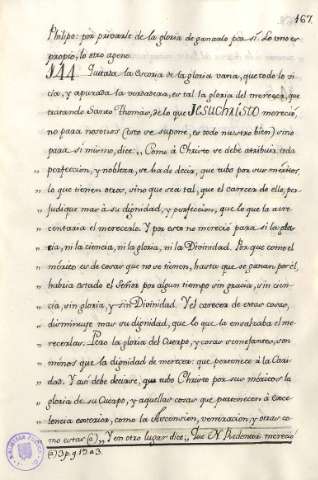 167.
Philipo: por privarle de la gloria de ganarlo por sí. Lo uno es
propio, lo otro ageno.
144 Quitada la escoria de la gloria vana, que todo lo vi-
cia, y apurada la verdadera, es tal la gloria del merecer, que
tratando Santo Thomás, de lo que JESUCHRISTO mereció,
no para nosotros (esto se supone, es todo nuestro bien) sino
para sí mismo, dice: „Como à Christo se debe atribuir toda
„ perfeccion, y nobleza, se ha de decir, que tubo por sus méritos
„ lo que tienen otros, sino que sea tal, que el carecer de ello, per-
„ judique mas à su dignidad, y perfeccion, que lo que la acre-
„ centaria el merecerlo. Y por esto no mereció para sí la gra-
„ cia, ni la ciencia, ni la gloria, ni la Divinidad. Porque como el
„ mérito es de cosas que no se tienen, hasta que se ganan por él,
„ habria estado el Señor por algun tiempo sin gracia, sin cien-
„ cia, sin gloria, y sin Divinidad. Y el carecer de estas cosas,
„ disminuye mas su dignidad, que lo que la ensalzaba el me-
„ recerlas. Pero la gloria del Cuerpo, y cosas semejantes, son
„ menos que la dignidad de merecer: que pertenece à la Cari-
„ dad. Y asi debe decirse, que tubo Christo por sus méritos la
„ gloria de su Cuerpo, y aquellas cosas que pertenecen à exce-
„ lencia exterior, como la Ascension, veneracion, y otras co-
„ mo estas (a)„ Y en otro lugar dice „Que N. Redentor mereció
(a) 3 p. q. 19. a 3.